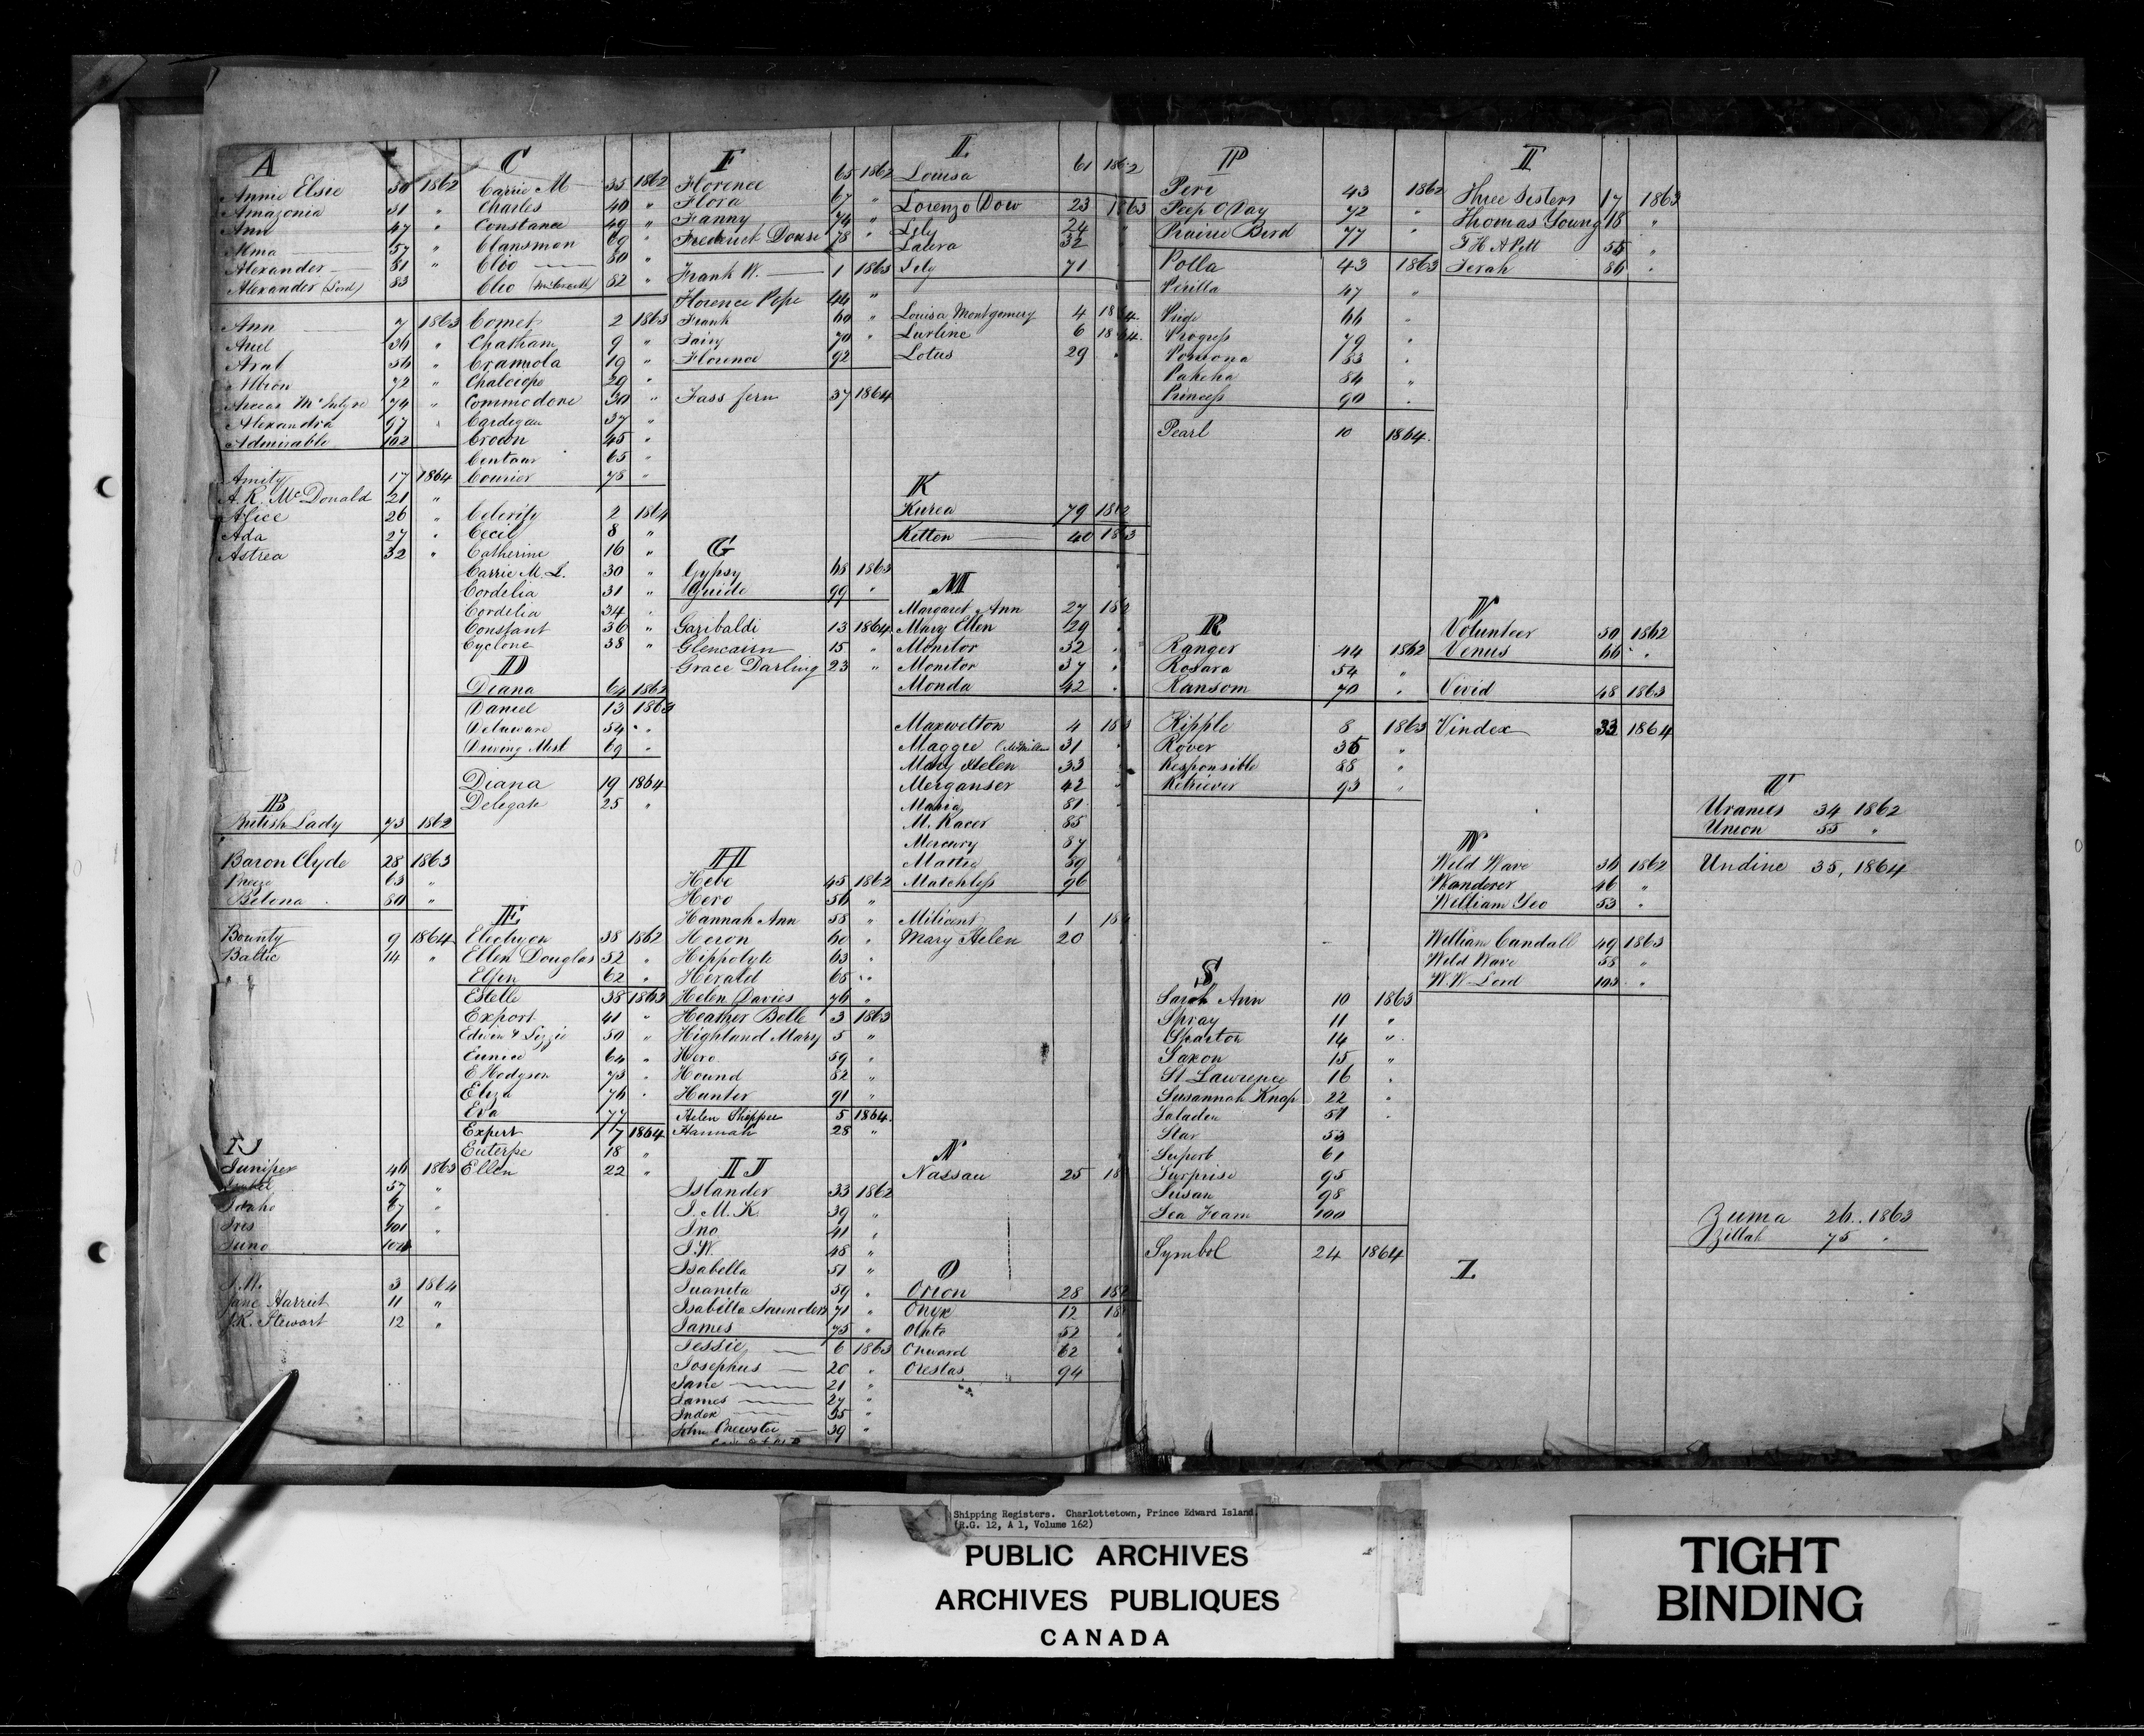 A
Annie Elsie 30 1862
Amazonia 31 "
Ann 47 "
Alma 57 "
Alexander 81 "
Alexander (Lord) 83
Ann 7 1863
Ariel 36 "
Arab 56 "
Albion 72 "
Annas McIntyre 74 "
Alexandra 97 "
Admirable 102
Amity 17 1864
A. R. McDonald 21 "
Alice 26 "
Ada 27 "
Astrea 32 "
B
British Lady 73 1862
Baron Clyde 28 1863
Breeze 63 "
Belona 80 "
Bounty 9 1864
Baltic 14 "
IJ
Juniper 46 1863
57 "
Idaho 67 "
Ires 101 "
Juno 104
J. M. 3 1864
Jane Harriet 11 "
J.R. Stewart 12 "
C
Carrie M 35 1862
Charles 40 "
Constance 49 "
Clansman 69 "
Clio 80 "
Clio 82 "
Comet 2 1863
Chatham 9 "
Cramiola 19 "
Chalciope 29 "
Commodore 30 "
Cardigan 37 "
Crown 45 "
Centaur 65 "
Courier 78 "
Celerity 2 1864
Cecil 8 "
Catherine 16 "
Carrie M. L. 30 "
Cordelia 31 "
Cordelia 34 "
Constant 36 "
Cyclone 38 "
D
Diana 64 1862
Daniel 13 1863
Delaware 54 "
Driving Mist 69 "
Diana 19 1864
Delegate 25 "
E
Electryon 38 1862
Ellen Douglas 52 "
Elfen 62 "
Estelle 38 1863
Export 41 "
Edwin & Lizzie 50 "
Eunice 64 "
E Hodgson 73 "
Eliza 76 "
Eva 77
Expert 7 1864
Euterpe 18 "
Ellen 22 "
F
Florence 65 1862
Flora 67 "
Fanny 74 "
Frederick Douse 78 "
Frank W. 1 1863
Florence Pope 44 "
Frank 60 "
Fairy 70 "
Florence 92
Fass fern 37 1864
G
Gypsy 68 1863
Guide 99 "
Garibaldi 13 1864
Glencairn 15 "
Grace Darling 23 "
H
Hebe 45 1862
Hero 56 "
Hannah Ann 58 "
Heron 60 "
Hippolyte 63 "
Herald 68 "
Helen Davies 76 "
Heather Belle 3 1863
Highland Mary 5 "
Hero 59 "
Hound 82 "
Hunter 91 "
Helen 5 1864
Hannah 28 "
IJ
Islander 33 1862
J. M. K. 39 "
Ino 41 "
J. W. 48 "
Isabella 51 "
Juanita 59 "
Isabella Saunders 71 "
James 75 "
Jessie 6 1863
Josephus 20 "
Jane 21 "
James 27 "
Index 35 "
John Brewster 39 "
L
Louisa 61 1862
Lorenzo Dow 23 1863
Lily 24
Laura 32
Lily 71
Louisa Montgomery 4 1864
Lurline 6 1864
Lotus 29 "
K
Kurea 79 1862
Kitton 40 1863
M
Margaret Ann 27 1862
Mary Ellen 29 "
Monitor 32 "
Monitor 37 "
Monda 42 "
Maxwelton 4 1863
Maggie (McMillan 31
Mary Helen 33
Merganser 42
Maria 81
M. Racer 85
Mercury 87
Mattie 89
Matchless 96
Milicent 1 186
Mary Helen 20
N
Nassau 25 18
O
Orion 28 1862
Onyx 12 18
52
Onward 62
Orestas 94
P
Peri 43 1862
Peep O Day 72 "
Prairie Bird 77 "
Polla 43 1863
Perilla 47 "
66 "
Progress 79 "
Pomona 83 "
Pakeha 84 "
Princess 90 "
Pearl 10 1864
R
Ranger 44 1862
Rosara 54 "
Ransom 70 "
Ripple 8 1863
Rover 35 "
Responsible 88 "
Retriever 93 "
S
Sarah Ann 10 1863
Spray 11 "
Sparton 14 "
Saxon 15 "
St Lawrence 16 "
Susannah Knap 22 "
Saladin 51 "
Star 53
Superb 61
Surprise 95
Susan 98
Sea Foam 100
Symbol 24 1864
T
Three Sisters 17 1863
Thomas Young 18 "
55 "
Terah 86 "
V
Volunteer 50 1862
Venus 66 "
Vivid 48 1863
Vindex 33 1864
W
Wild Wave 36 1862
Wanderer 46 "
William Yeo 53 "
William Cundall 49 1863
Wild Wave 58 "
W. W. Lord 103 "
Z
U
Uranies 34 1862
Union 55 "
Undine 35, 1864
Zuma 26.. 1863
Zillah 75 "
Shipping Registers. Charlottetown, Prince Edward Island.
(R.G. 12, A 1, Volume 162)
PUBLIC ARCHIVES
ARCHIVES PUBLIQUES
CANADA
TIGHT
BINDING